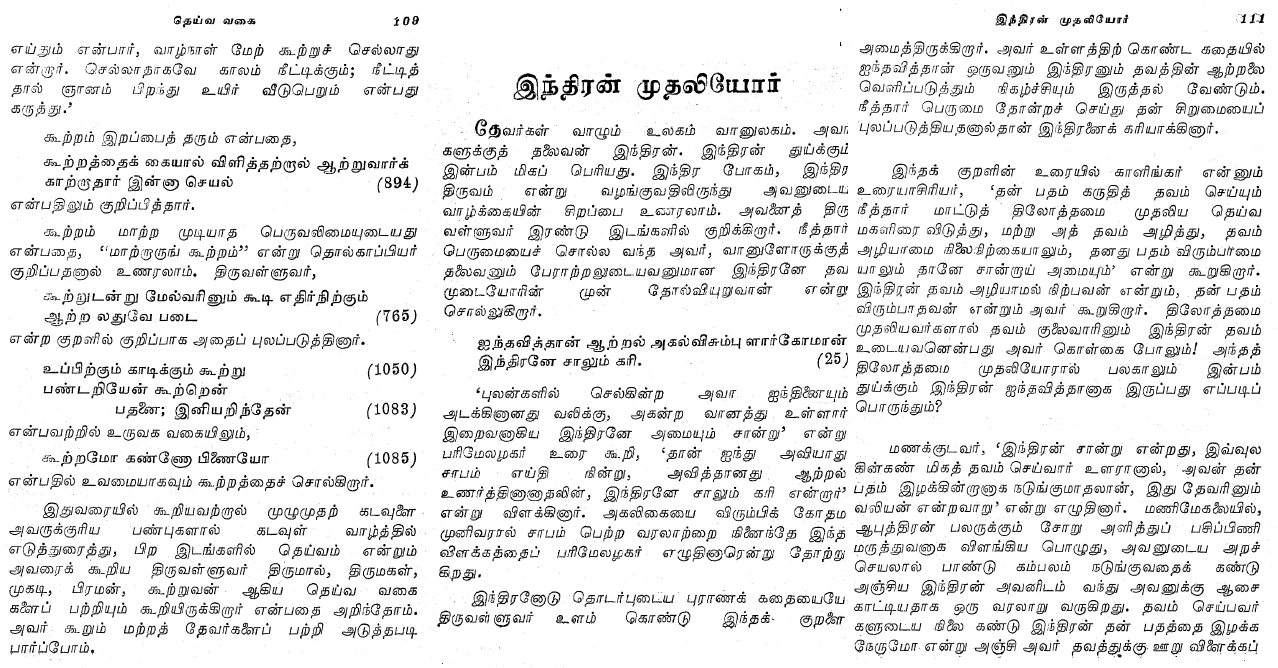 தெய்வ வகை 109
எய்தும் என்பார், வாழ்நாள் மேற் கூற்றுச் செல்லாது
என்றார். செல்லாதாகவே காலம் நீட்டிக்கும்; நீட்டித்
தால் ஞானம் பிறந்து உயிர் வீடுபெறும் என்பது
கருத்து.'
கூற்றம் இறப்பைத் தரும் என்பதை,
கூற்றத்தைக் கையால் விளித்தற்றால் ஆற்றுவார்க்
காற்றாதார் இன்னா செயல் (894)
என்பதிலும் குறிப்பித்தார்.
கூற்றம் மாற்ற முடியாத பெருவலிமையுடையது
என்பதை, “மாற்றருங் கூற்றம்” என்று தொல்காப்பியர்
குறிப்பதனால் உணரலாம். திருவள்ளுவர்,
கூற்றுடன்று மேல்வரினும் கூடி எதிர்நிற்கும்
ஆற்ற லதுவே படை (765)
என்ற குறளில் குறிப்பாக அதைப் புலப்படுத்தினார்.
உப்பிற்கும் காடிக்கும் கூற்று (1050)
பண்டறியேன் கூற்றென்
பதனை; இனியறிந்தேன் (1083)
என்பவற்றில் உருவக வகையிலும்,
கூற்றமோ கண்ணோ பிணையோ (1085)
என்பதில் உவமையாகவும் கூற்றத்தைச் சொல்கிறார்.
இதுவரையில் கூறியவற்றால் முழுமுதற் கடவுளை
அவருக்குரிய பண்புகளால் கடவுள் வாழ்த்தில்
எடுத்துரைத்து, பிற இடங்களில் தெய்வம் என்றும்
அவரைக் கூறிய திருவள்ளுவர் திருமால், திருமகள்,
முகடி, பிரமன், கூற்றுவன் ஆகிய தெய்வ வகை
களைப் பற்றியும் கூறியிருக்கிறார் என்பதை அறிந்தோம்.
அவர் கூறும் மற்றத் தேவர்களைப் பற்றி அடுத்தபடி
பார்ப்போம்.
இந்திரன் முதலியோர்
தேவர்கள் வாழும் உலகம் வானுலகம். அவர்
களுக்குத் தலைவன் இந்திரன். இந்திரன் துய்க்கும்
இன்பம் மிகப் பெரியது. இந்திர போகம், இந்திர
திருவம் என்று வழங்குவதிலிருந்து அவனுடைய
வாழ்க்கையின் சிறப்பை உணரலாம். அவனைத் திரு
வள்ளுவர் இரண்டு இடங்களில் குறிக்கிறார். நீத்தார்
பெருமையைச் சொல்ல வந்த அவர், வானுளோருக்குத்
தலைவனும் பேராற்றலுடையவனுமான இந்திரனே தவ
முடையோரின் முன் தோல்வியுறுவான் என்று
சொல்லுகிறார்.
ஐந்தவித்தான் ஆற்றல் அகல்விசும்பு ளார்கோமான்
இந்திரனே சாலும் கரி. (25)
‘புலன்களில் செல்கின்ற அவா ஐந்தினையும்
அடக்கினானது வலிக்கு, அகன்ற வானத்து உள்ளார்
இறைவனாகிய இந்திரனே அமையும் சான்று’ என்று
பரிமேலழகர் உரை கூறி, ‘தான் ஐந்து அவியாது
சாபம் எய்தி நின்று, அவித்தானது ஆற்றல்
உணர்த்தினானாதலின், இந்திரனே சாலும் கரி என்றார்’
என்று விளக்கினார். அகலிகையை விரும்பிக் கோதம
முனிவரால் சாபம் பெற்ற வரலாற்றை நினைந்தே இந்த
விளக்கத்தைப் பரிமேலழகர் எழுதினாரென்று தோற்று
கிறது.
இந்திரனோடு தொடர்புடைய புராணக் கதையையே
திருவள்ளுவர் உளம் கொண்டு இந்தக் குறளை
இந்திரன் முதலியோர் 111
அமைத்திருக்கிறார். அவர் உள்ளத்திற் கொண்ட கதையில்
ஐந்தவித்தான் ஒருவனும் இந்திரனும் தவத்தின் ஆற்றலை
வெளிப்படுத்தும் நிகழ்ச்சியும் இருத்தல் வேண்டும்.
நீத்தார் பெருமை தோன்றச் செய்து தன் சிறுமையைப்
புலப்படுத்தியதனால்தான் இந்திரனைக் கரியாக்கினார்.
இந்தக் குறளின் உரையில் காளிங்கர் என்னும்
உரையாசிரியர், ‘தன் பதம் கருதித் தவம் செய்யும்
நீத்தார் மாட்டுத் திலோத்தமை முதலிய தெய்வ
மகளிரை விடுத்து, மற்று அத் தவம் அழித்து, தவம்
அழியாமை நிலைநிற்கையாலும், தனது பதம் விரும்பாமை
யாலும் தானே சான்றாய் அமையும்’ என்று கூறுகிறார்.
இந்திரன் தவம் அழியாமல் நிற்பவன் என்றும், தன் பதம்
விரும்பாதவன் என்றும் அவர் கூறுகிறார். திலோத்தமை
முதலியவர்களால் தவம் குலைவாரினும் இந்திரன் தவம்
உடையவனென்பது அவர் கொள்கை போலும்! அந்தத்
திலோத்தமை முதலியோரால் பலகாலும் இன்பம்
துய்க்கும் இந்திரன் ஐந்தவித்தானாக இருப்பது எப்படிப்
பொருந்தும்?
மணக்குடவர், ‘இந்திரன் சான்று என்றது, இவ்வுல
கின்கண் மிகத் தவம் செய்வார் உளரானால், அவன் தன்
பதம் இழக்கின்றானாக நடுங்குமாதலான், இது தேவரினும்
வலியன் என்றவாறு’ என்று எழுதினார். மணிமேகலையில்,
ஆபுத்திரன் பலருக்கும் சோறு அளித்துப் பசிப்பிணி
மருத்துவனாக விளங்கிய பொழுது, அவனுடைய அறச்
செயலால் பாண்டு கம்பலம் நடுங்குவதைக் கண்டு
அஞ்சிய இந்திரன் அவனிடம் வந்து அவனுக்கு ஆசை
காட்டியதாக ஒரு வரலாறு வருகிறது. தவம் செய்பவர்
களுடைய நிலை கண்டு இந்திரன் தன் பதத்தை இழக்க
நேருமோ என்று அஞ்சி அவர் தவத்துக்கு ஊறு விளைக்கப்